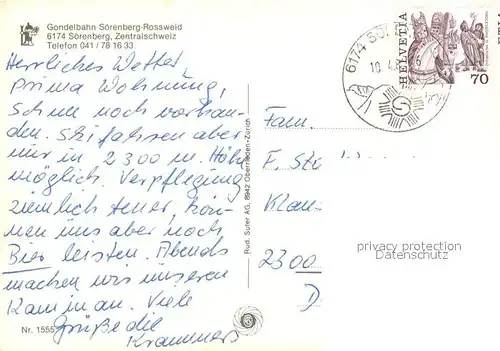 Gondelbahn Sörenberg-Rossweid
6174 Sörenberg, Zentralschweiz
Telefon 041 / 78 16 33
Herrliches Wetter,
prima Wohnung,
Schnee noch vorhan-
den. Skifahren aber
nur in 2300 m. Höhe
möglich. Verpflegung
ziemlich teuer, kön-
nen uns aber noch
Bier leisten. Abends
machen wir unseren
Kamin an. Viele
Grüße die
Krammers
Nr. 1555
Rud. Suter AG, 8942 Oberrieden-Zürich
6174 SÖ
10.4.
HELVETIA
70
Fam.
F. Sto
Klau
2300
D
privacy protection
Datenschutz